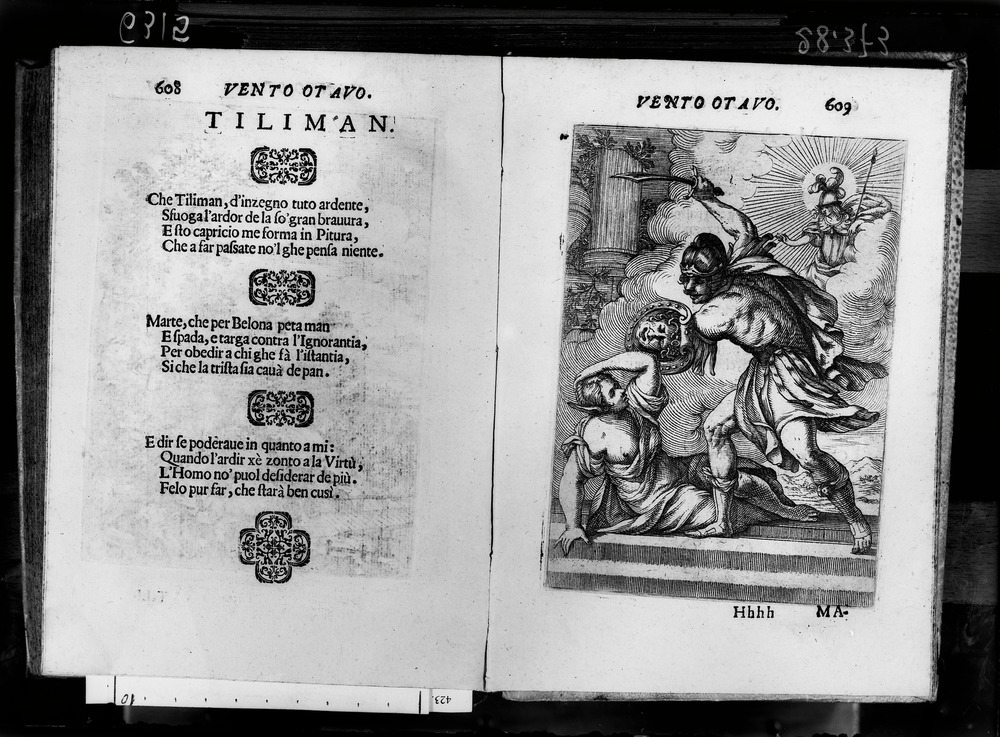 608 VENTO OTAVO.
TILIMAN.
Che Tiliman, d'inzegno tuto ardente,
Sfuoga l'ardor de la so' gran brauura,
E sto capricio me forma in Pitura,
Che a far passate no'l ghe pensa niente.
Marte, che per Belona peta man
E spada, e targa contra l'Ignorantia,
Per obedir a chi ghe fà l'istantia,
Si che la trista sia cauà de pan.
E dir se poderaue in quanto a mi:
Quando l'ardir xè zonto a la Virtù,
L'Homo no' puol desiderar de più.
Felo pur far, che starà ben cusì.
VENTO OTAVO. 609
Hhhh MA-
6315
88:373
10
423